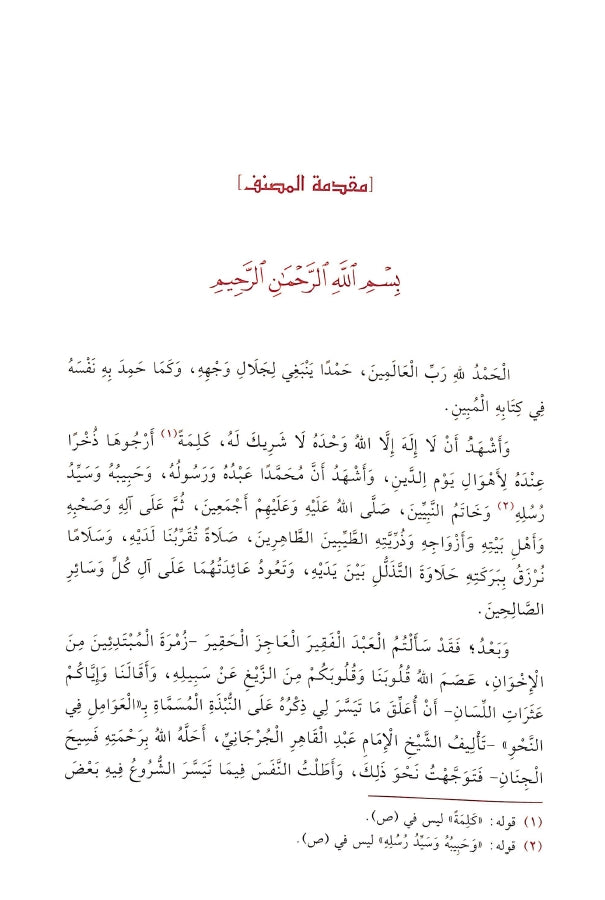 [مقدمة المصنف]
بِسْمِ ٱللَّهِ ٱلرَّحْمَٰنِ ٱلرَّحِيمِ
الْحَمْدُ للهِ رَبِّ الْعَالَمِينَ، حَمْدًا يَنْبَغِي لِجَلَالِ وَجْهِهِ، وَكَمَا حَمِدَ بِهِ نَفْسَهُ
فِي كِتَابِهِ الْمُبِينِ.
وَأَشْهَدُ أَنْ لَا إِلَهَ إِلَّا اللهُ وَحْدَهُ لَا شَرِيكَ لَهُ، كَلِمَةً(١) أَرْجُوهَا ذُخْرًا
عِنْدَهُ لِأَهْوَالِ يَوْمِ الدِّينِ، وَأَشْهَدُ أَنَّ مُحَمَّدًا عَبْدُهُ وَرَسُولُهُ، وَحَبِيبُهُ وَسَيِّدُ
رُسُلِهِ(٢) وَخَاتَمُ النَّبِيِّينَ، صَلَّى اللهُ عَلَيْهِ وَعَلَيْهِمْ أَجْمَعِينَ، ثُمَّ عَلَى آلِهِ وَصَحْبِهِ
وَأَهْلِ بَيْتِهِ وَأَزْوَاجِهِ وَذُرِّيَّتِهِ الطَّيِّبِينَ الطَّاهِرِينَ، صَلَاةً تُقَرِّبُنَا لَدَيْهِ، وَسَلَامًا
نُرْزَقُ بِبَرَكَتِهِ حَلَاوَةَ التَّذَلُّلِ بَيْنَ يَدَيْهِ، وَتَعُودُ عَائِدَتُهُمَا عَلَى آلِ كُلٍّ وَسَائِرِ
الصَّالِحِينَ.
وَبَعْدُ؛ فَقَدْ سَأَلْتُمُ الْعَبْدَ الْفَقِيرَ الْعَاجِزَ الْحَقِيرَ -زُمْرَةَ الْمُبْتَدِئِينَ مِنَ
الْإِخْوَانِ، عَصَمَ اللهُ قُلُوبَنَا وَقُلُوبَكُمْ مِنَ الزَّيْغِ عَنْ سَبِيلِهِ، وَأَقَالَنَا وَإِيَّاكُمْ
عَثَرَاتِ اللِّسَانِ- أَنْ أُعَلِّقَ مَا تَيَسَّرَ لِي ذِكْرُهُ عَلَى النُّبْذَةِ الْمُسَمَّاةِ بِـ«الْعَوَامِلِ فِي
النَّحْوِ» -تَأْلِيفُ الشَّيْخِ الْإِمَامِ عَبْدِ الْقَاهِرِ الْجُرْجَانِيِّ، أَحَلَّهُ اللهُ بِرَحْمَتِهِ فَسِيحَ
الْجِنَانِ- فَتَوَجَّهْتُ نَحْوَ ذَلِكَ، وَأَطَلْتُ النَّفَسَ فِيمَا تَيَسَّرَ الشُّرُوعُ فِيهِ بَعْضَ
(١) قوله: «كَلِمَةً» ليس في (ص).
(٢) قوله: «وَحَبِيبُهُ وَسَيِّدُ رُسُلِهِ» ليس في (ص).